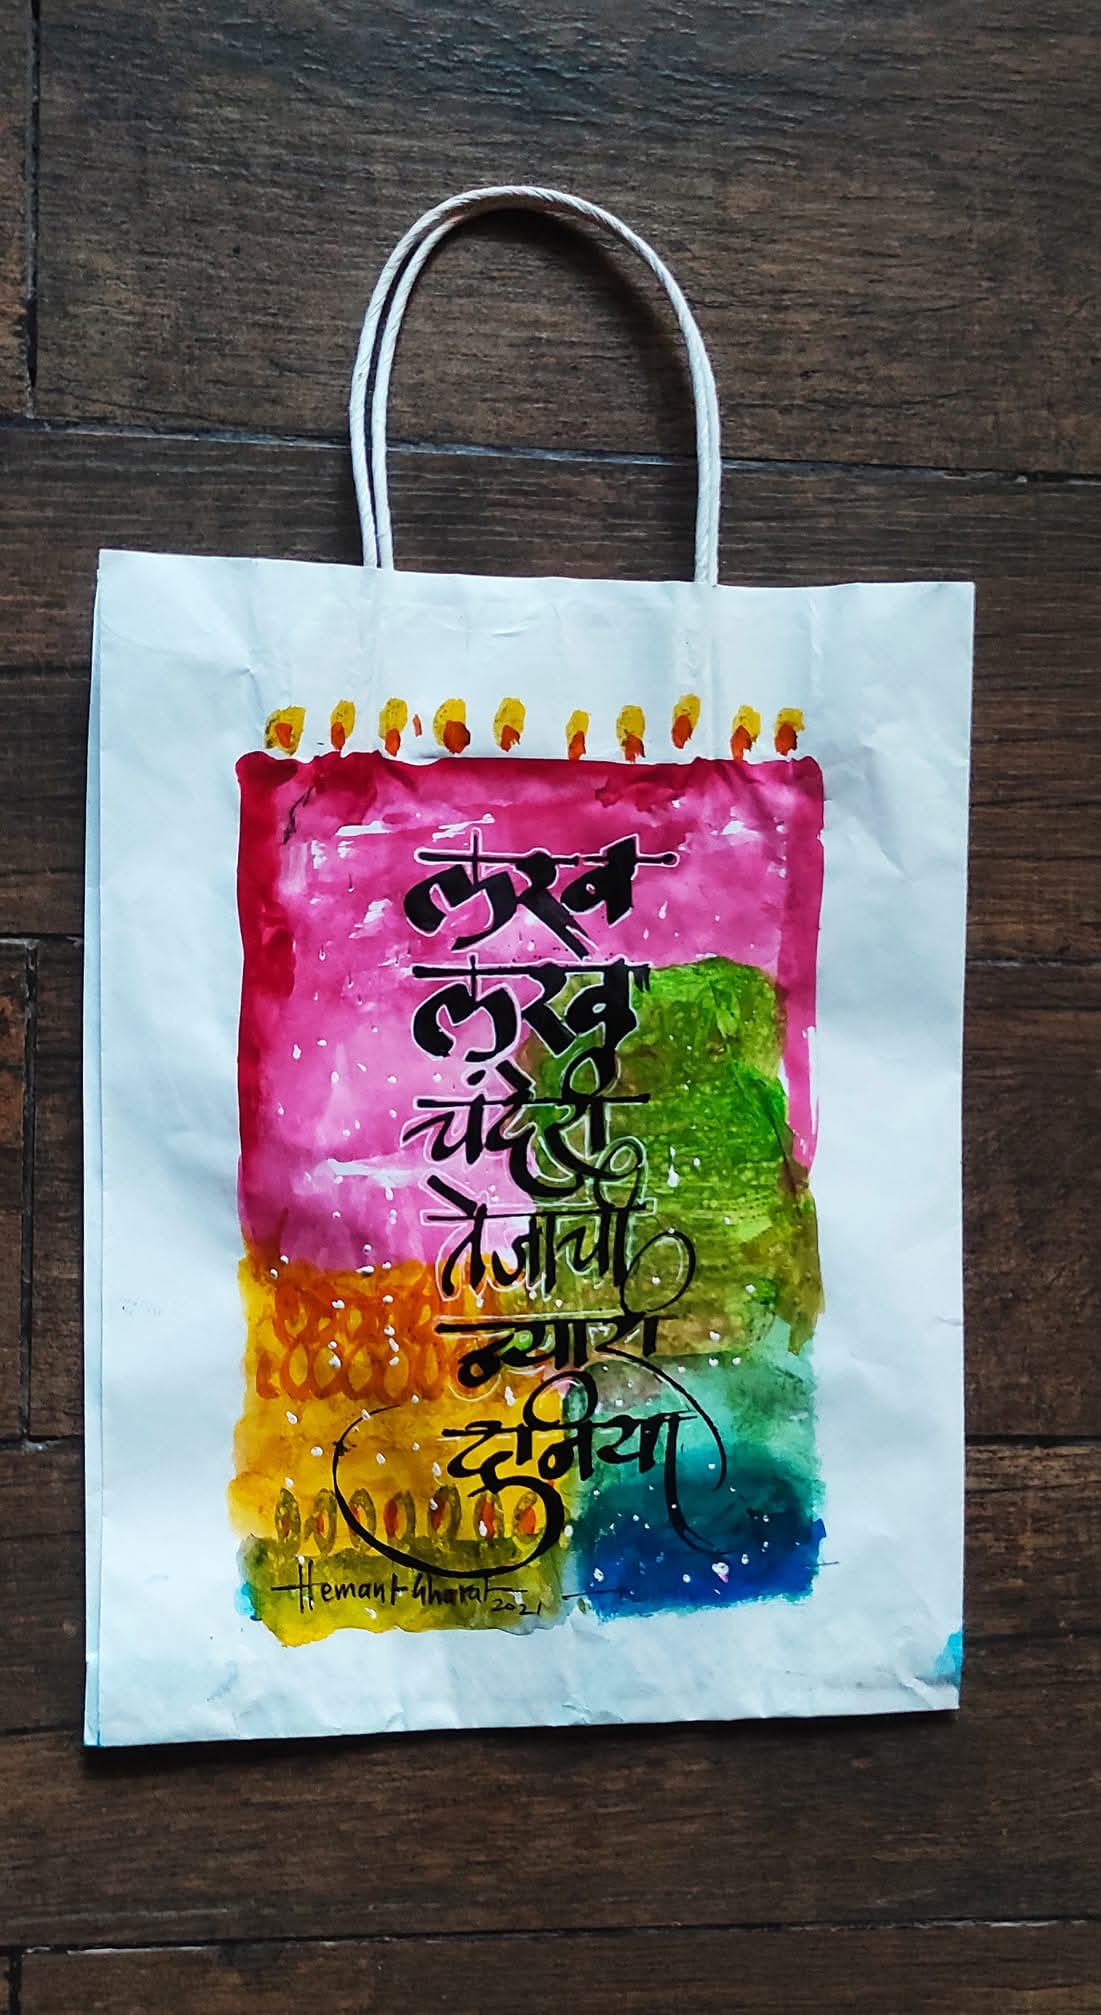 लख
लख
चंदेरी
तेजाची
न्यारी
दुनिया
Hemant Gharat
2021